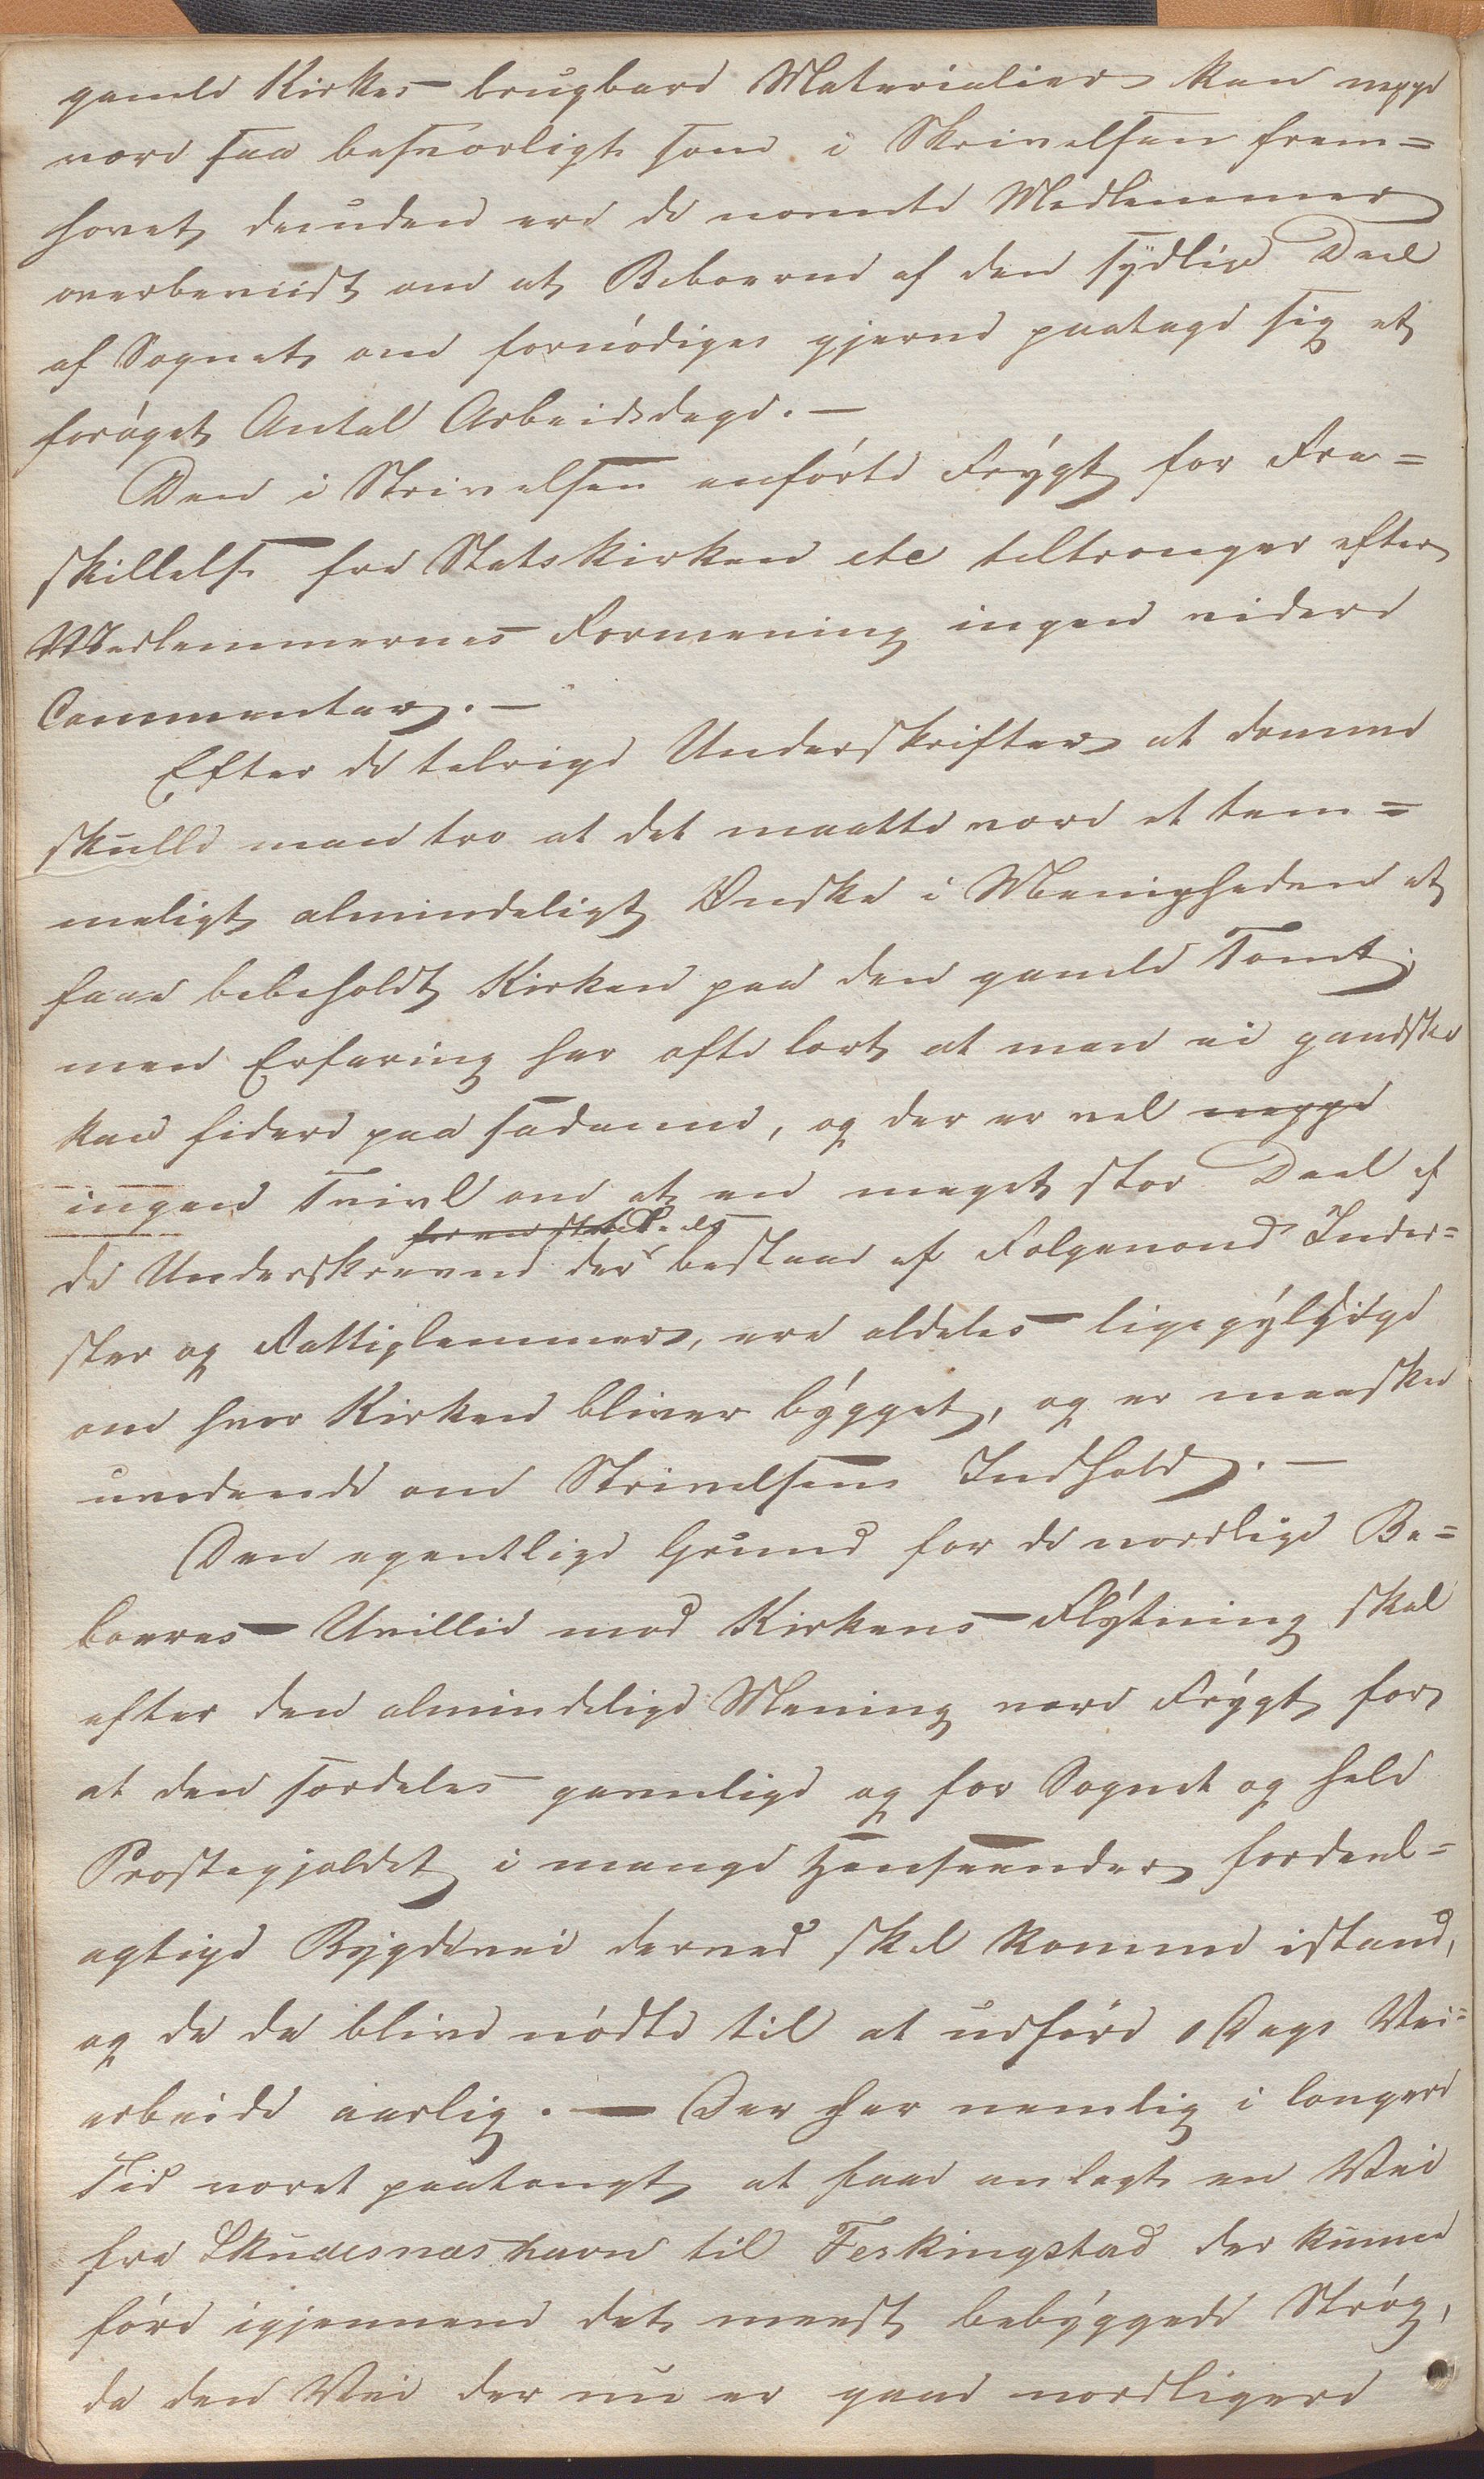 gamle Kirkes brugbare Materialier kan neppe
være saa besværligt som i Skrivelsen frem=
hævet, desuden ere de nævnte Medlemmer
overbeviist om at Beboerne af den sydlige Deel
af Sognet om fornødiges gjerne paatage sig et
forøget Antal Arbeidsdage. —
Den i Skrivelsen anførte Frygt for Fra=
skillelse fra Statskirken etc tiltrænger efter
Medlemmernes Formening ingen videre
Commentar. —
Efter de talrige Underskrifter at dømme
skulde man tro at det maatte være et tem=
meligt almindeligt Ønske i Menigheden at
faae beholdt Kirken paa den gamle Tomt,
men Erfaring har ofte lært at man ei gandske
kan fidere paa sadanne, og der er vel neppe
ingen Tvivl om at en meget stor Deel af
de Underskrevne der bestaar af Folgemænd Inder=
ster og Fattiglemmer, ere aldeles ligegyldige
om hvor Kirken bliver bygget, og er maaske
uvidende om Skrivelsens Indhold. —
Den egentlige Grund for de nordlige Be=
boeres Uvillie mod Kirkens Flytning skal
efter den almindelige Mening være Frygt for
at den særdeles gavnlige og for Sognet og hele
Præstegjældet i mange Henseender fordeel=
agtige Bygdevei derved skal komme istand,
og de da blive nødte til at udføre 1 Dags Vei=
arbeide aarlig. — Der har nemlig i længere
Tid været paatænkt at faae anlagt en Vei
fra Skudesnæshavn til Ferkingstad der kunne
føre igjennem det meest bebyggede Strøg,
da den Vei der nu er gaar nordligere